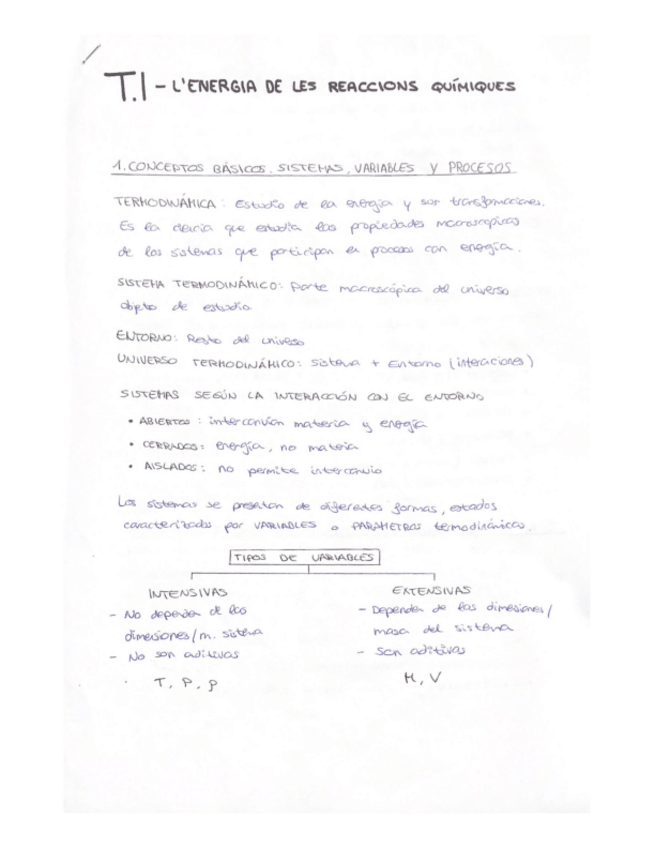 T.1 - L'ENERGIA DE LES REACCIONS QUÍMIQUES
1. CONCEPTOS BÁSICOS. SISTEMAS, VARIABLES Y PROCESOS
TERMODINÁMICA: Estudio de la energía y sus transformaciones.
Es la ciencia que estudia las propiedades macroscópicas
de los sistemas que participan en procesos con energía.
SISTEMA TERMODINÁMICO: parte macroscópica del universo
objeto de estudio
ENTORNO: Resto del universo
UNIVERSO TERMODINÁMICO: Sistema + Entorno (interaciones)
SISTEMAS SEGÚN LA INTERACCIÓN CON EL ENTORNO
• ABIERTOS: intercanvian materia y energía
• CERRADOS: energía, no materia
• AISLADOS: no permite intercanvio
Los sistemas se presentan de diferentes formas, estados
caracterizados por VARIABLES o PARÁMETROS temodinámicos.
TIPOS DE VARIABLES
INTENSIVAS
- No depender de las
dimesiones/m. sistema
- No son aditivas
T, P, ρ
EXTENSIVAS
- Depender de las dimesiones/
masa del sistema
- Son aditivas
M, V